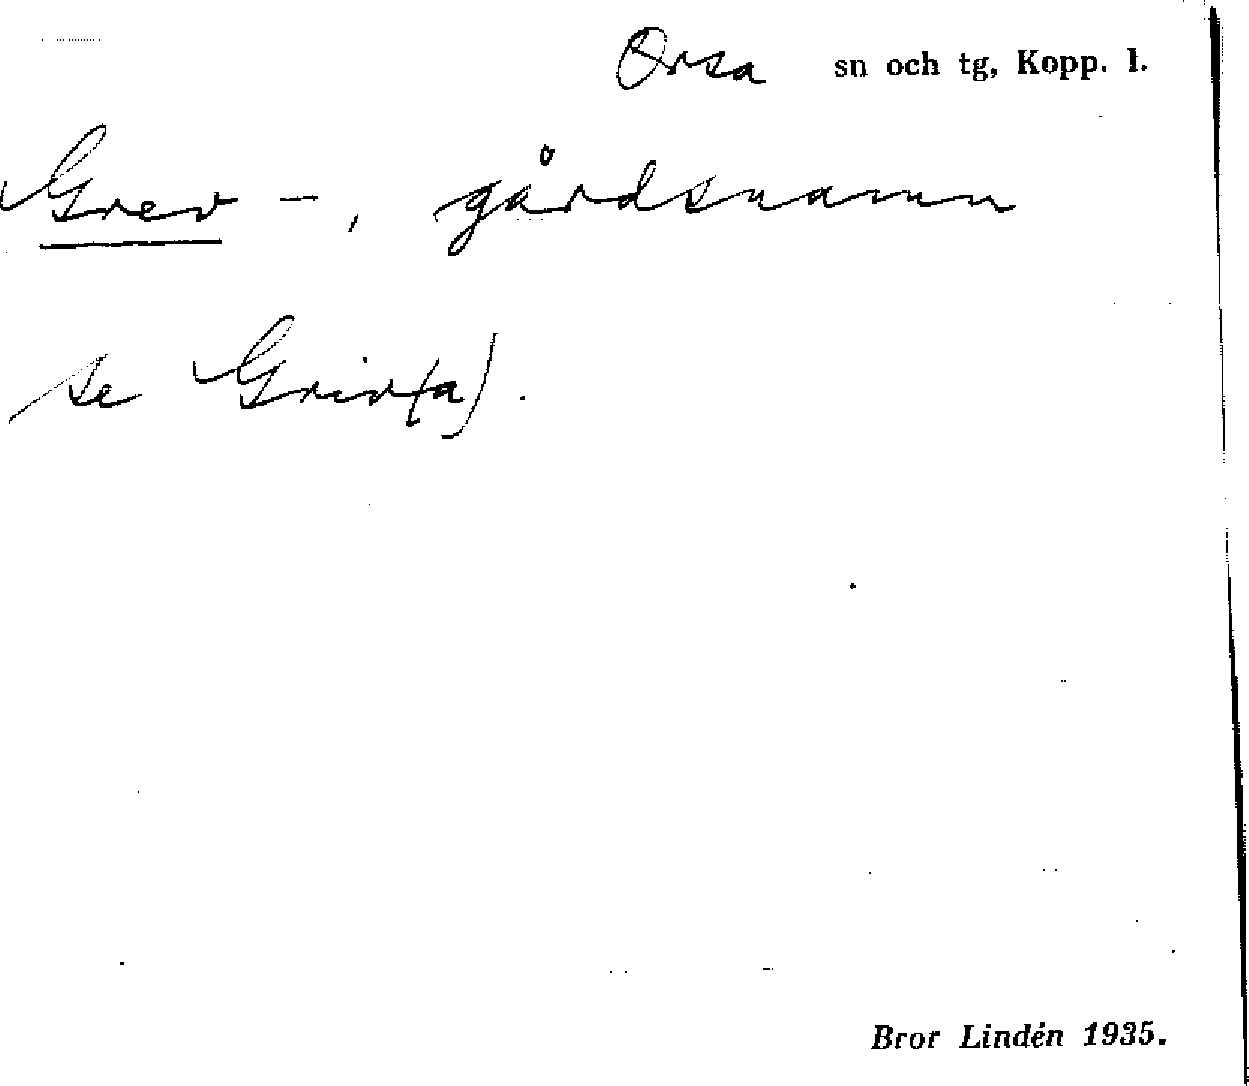 Orsa sn och tg, Kopp. l.
Grev –, gårdsnamn
se Griv(a).
Bror Lindén 1935.